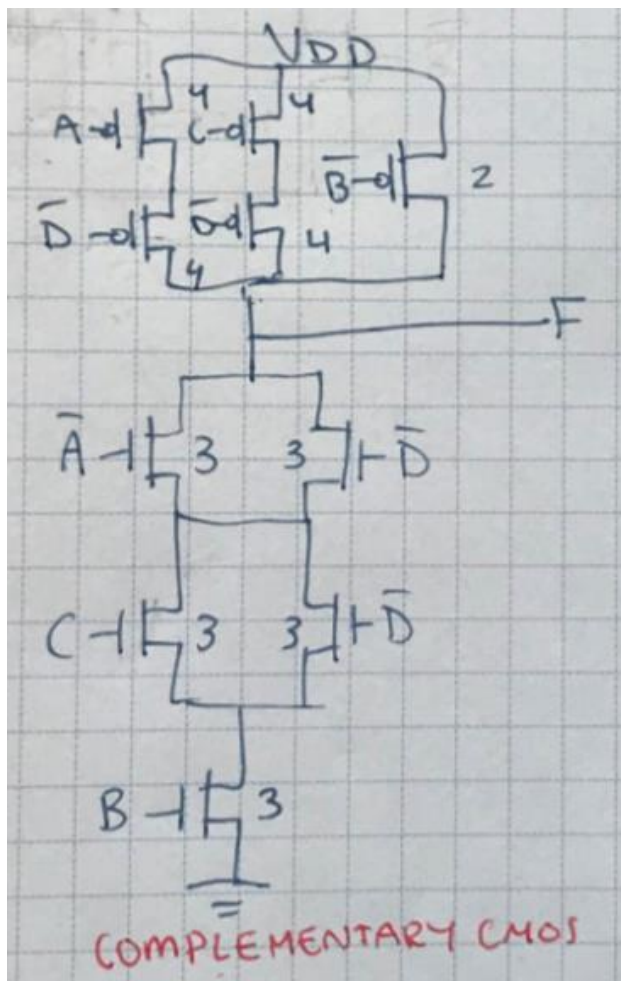 VDD
4 4
A C
B̅ 2
D̅ D̅ 4
4
F
A̅ 3 3 D̅
C 3 3 D̅
B 3
COMPLEMENTARY CMOS